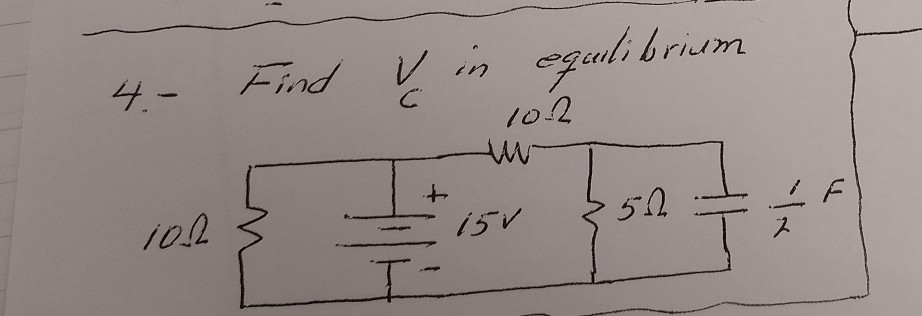 4.- Find Vc in equilibrium
10Ω
10Ω
+
15V
-
5Ω
1/2 F